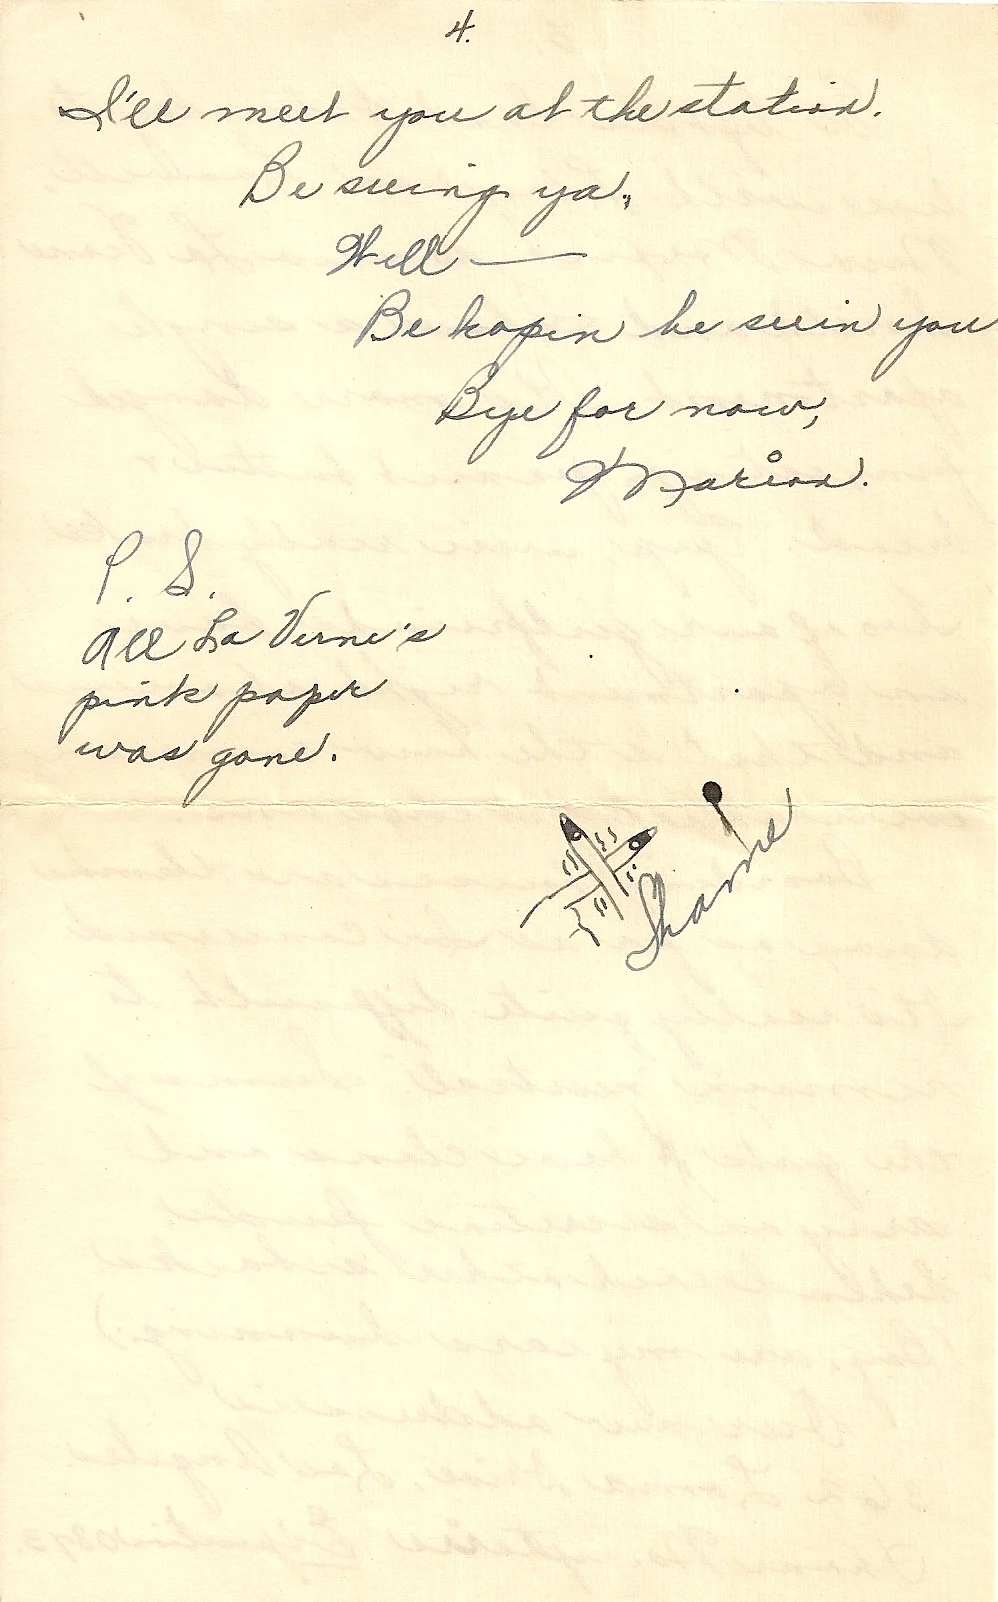 4.
I'll meet you at the station.
Be seeing ya.,
Well —
Be hopin he seein you
Bye for now,
Marion.
P. S.
All La Verne's
pink paper
was gone.
Shame